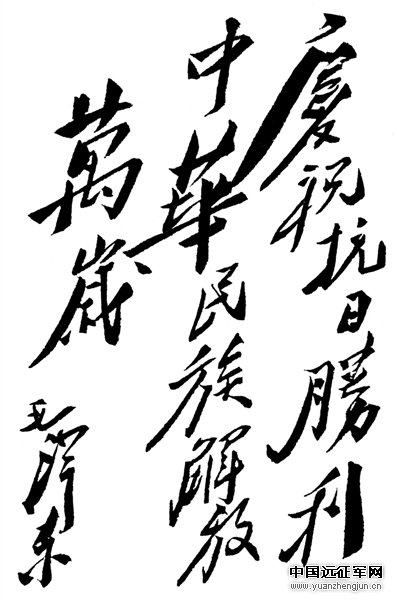 慶祝抗日勝利
中華民族解放
萬歲
毛澤东
中国远征军网
www.yuanzhengjun.cn